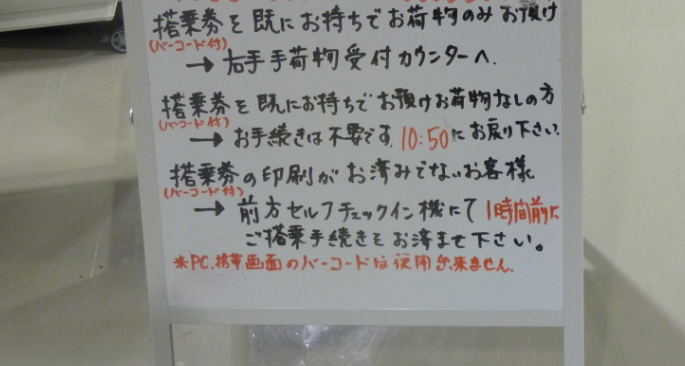 搭乗券を既にお持ちでお荷物のみお預け
(バーコード付)
→右手手荷物受付カウンターへ.
搭乗券を既にお持ちでお預けお荷物なしの方
(バーコード付)
→お手続きは不要です.10:50にお戻り下さい.
搭乗券の印刷がお済みでないお客様
(バーコード付)
→前方セルフチェックイン機にて1時間前に
ご搭乗手続きをお済ませ下さい。
※PC.携帯画面のバーコードは使用出来ません.